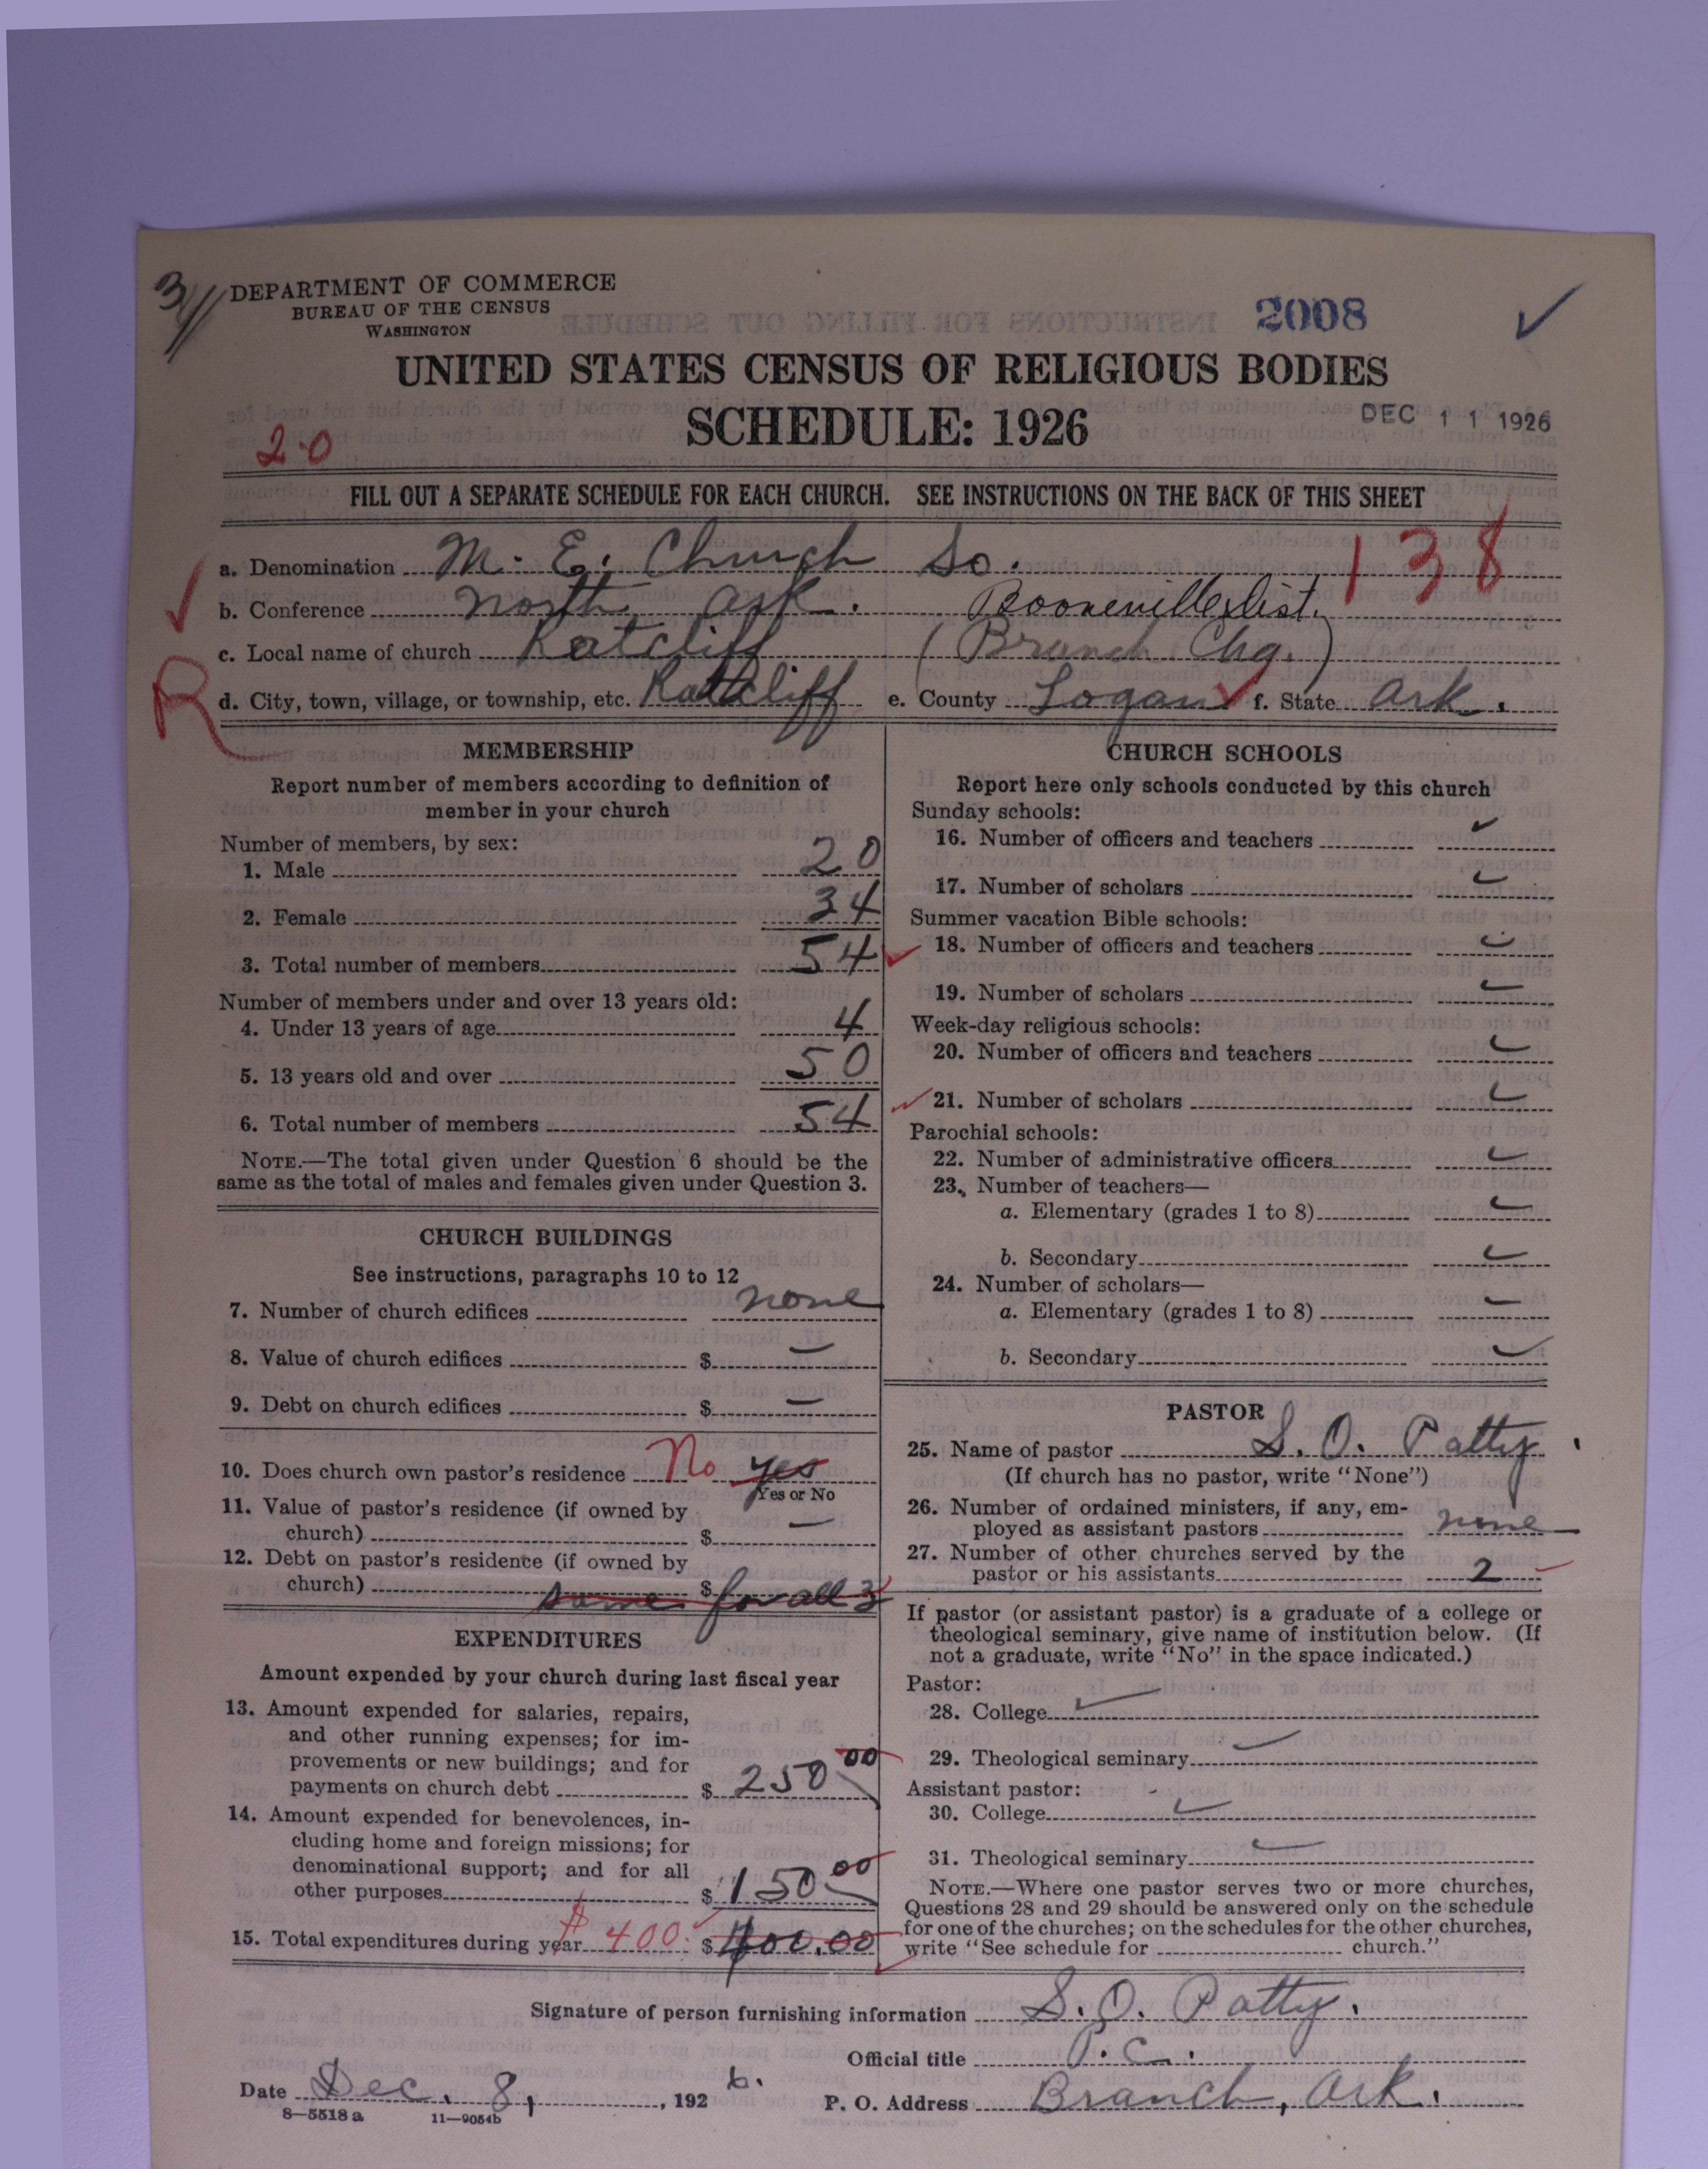 3//
DEPARTMENT OF COMMERCE
BUREAU OF THE CENSUS
WASHINGTON
2008
UNITED STATES CENSUS OF RELIGIOUS BODIES
SCHEDULE: 1926
DEC 11 1926
2-0
FILL OUT A SEPARATE SCHEDULE FOR EACH CHURCH. SEE INSTRUCTIONS ON THE BACK OF THIS SHEET
138
a. Denomination M. E. Church So.
b. Conference North Ark. Booneville dist.
c. Local name of church Ratcliff (Branch Chg.)
R
d. City, town, village, or township, etc. Ratcliff e. County Logan f. State Ark.
MEMBERSHIP
Report number of members according to definition of
member in your church
Number of members, by sex:
1. Male 20
2. Female 34
3. Total number of members 54
Number of members under and over 13 years old:
4. Under 13 years of age 4
5. 13 years old and over 50
6. Total number of members 54
NOTE.—The total given under Question 6 should be the
same as the total of males and females given under Question 3.
CHURCH BUILDINGS
See instructions, paragraphs 10 to 12
7. Number of church edifices none
8. Value of church edifices $ —
9. Debt on church edifices $ —
10. Does church own pastor's residence No yes
Yes or No
11. Value of pastor's residence (if owned by
church) $ —
12. Debt on pastor's residence (if owned by
church) $ same for all 3
EXPENDITURES
Amount expended by your church during last fiscal year
13. Amount expended for salaries, repairs,
and other running expenses; for im-
provements or new buildings; and for
payments on church debt $ 250 00
14. Amount expended for benevolences, in-
cluding home and foreign missions; for
denominational support; and for all
other purposes $ 150 00
15. Total expenditures during year $ 400. $ 400.00
CHURCH SCHOOLS
Report here only schools conducted by this church
Sunday schools:
16. Number of officers and teachers
17. Number of scholars
Summer vacation Bible schools:
18. Number of officers and teachers
19. Number of scholars
Week-day religious schools:
20. Number of officers and teachers
21. Number of scholars
Parochial schools:
22. Number of administrative officers
23. Number of teachers—
a. Elementary (grades 1 to 8)
b. Secondary
24. Number of scholars—
a. Elementary (grades 1 to 8)
b. Secondary
PASTOR
25. Name of pastor S. O. Patty.
(If church has no pastor, write "None")
26. Number of ordained ministers, if any, em-
ployed as assistant pastors none
27. Number of other churches served by the
pastor or his assistants 2
If pastor (or assistant pastor) is a graduate of a college or
theological seminary, give name of institution below. (If
not a graduate, write "No" in the space indicated.)
Pastor:
28. College
29. Theological seminary
Assistant pastor:
30. College
31. Theological seminary
NOTE.—Where one pastor serves two or more churches,
Questions 28 and 29 should be answered only on the schedule
for one of the churches; on the schedules for the other churches,
write "See schedule for church."
Signature of person furnishing information S. O. Patty.
Official title P. C.
Date Dec. 8, 1926. P. O. Address Branch, Ark.
8—5518 a 11—9054b